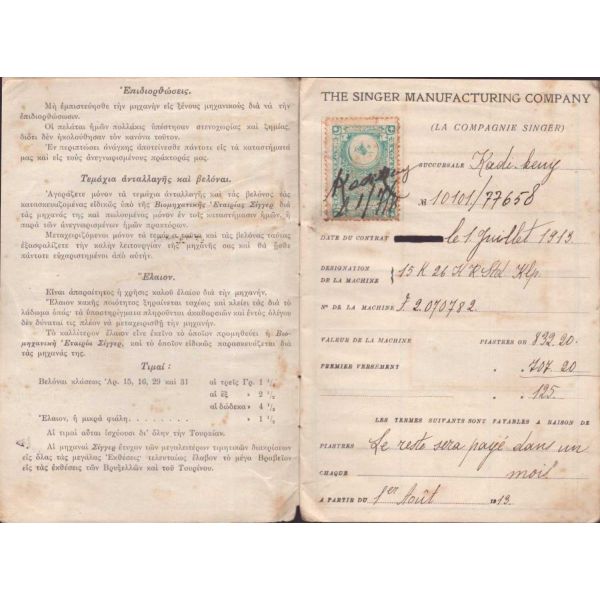 Ἐπιδιορθώσεις.
Μὴ ἐμπιστεύησθε τὴν μηχανὴν εἰς ξένους μηχανικοὺς διὰ νὰ τὴν
ἐπιδιορθώσωσιν.
Οἱ πελάται ἡμῶν πολλάκις ὑπέστησαν στενοχωρίας καὶ ζημίας,
διότι δὲν ἠκολούθησαν τὸν κανόνα τοῦτον.
Ἐν περιπτώσει ἀνάγκης ἀποτείνεσθε πάντοτε εἰς τὰ καταστήματά
μας καὶ εἰς τοὺς ἀνεγνωρισμένους πράκτοράς μας.
Τεμάχια ἀνταλλαγῆς καὶ βελόναι.
Ἀγοράζετε μόνον τὰ τεμάχια ἀνταλλαγῆς καὶ τὰς βελόνας τὰς
κατασκευαζομένας εἰδικῶς ὑπὸ τῆς Βιομηχανικῆς Ἑταιρίας Σίγγερ διὰ
τὰς μηχανάς της καὶ πωλουμένας μόνον ἐν τοῖς καταστήμασιν ἡμῶν, ἢ
παρὰ τῶν ἀνεγνωρισμένων ἡμῶν πρακτόρων.
Μεταχειριζόμενοι μόνον τὰ τεμάχια ταῦτα καὶ τὰς βελόνας ταύτας
ἐξασφαλίζετε τὴν καλὴν λειτουργίαν τῆς μηχανῆς σας καὶ θὰ ἦσθε
κάτοχοι εὐχαριστημένοι ἀπὸ αὐτήν.
Ἔλαιον.
Εἶναι ἀπαραίτητος ἡ χρῆσις καλοῦ ἐλαίου διὰ τὴν μηχανήν.
Ἔλαιον κακῆς ποιότητος ξηραίνεται ταχέως καὶ κλείει τὰς διὰ τὸ
λάδωμα ὀπάς· τὰ ὑποστηρίγματα πληροῦνται ἀκαθαρσιῶν καὶ ἐντὸς ὀλίγου
δὲν δύναταί τις πλέον νὰ μεταχειρισθῇ τὴν μηχανήν.
Τὸ καλλίτερον ἔλαιον εἶνε ἐκεῖνο τὸ ὁποῖον προμηθεύει ἡ Βιο-
μηχανικὴ Ἑταιρία Σίγγερ, καὶ τὸ ὁποῖον εἰδικῶς παρασκευάζεται διὰ
τὰς μηχανάς της.
Τιμαί:
Βελόναι κλάσεως Ἀρ. 15, 16, 29 καὶ 31 αἱ τρεῖς Γρ. 1 ½
αἱ ἓξ » 2 ½
αἱ δώδεκα » 4 ½
Ἔλαιον, ἡ μικρὰ φιάλη. » 1 ½
Αἱ τιμαὶ αὗται ἰσχύουσι δι' ὅλην τὴν Τουρκίαν.
Αἱ μηχαναὶ Σίγγερ ἔτυχον τῶν μεγαλειτέρων τιμητικῶν διακρίσεων
εἰς ὅλας τὰς μεγάλας Ἐκθέσεις· τελευταίως ἔλαβον τὸ μέγα Βραβεῖον
εἰς τὰς ἐκθέσεις τῶν Βρυξελλῶν καὶ τοῦ Τουρίνου.
THE SINGER MANUFACTURING COMPANY
(LA COMPAGNIE SINGER)
SUCCURSALE Kadi-keuy
№ 10101/77658
DATE DU CONTRAT le 1 Juillet 1913
DÉSIGNATION
DE LA MACHINE 15 K 26
Nº DE LA MACHINE F 2.070782
VALEUR DE LA MACHINE PIASTRES OR 832.20
PREMIER VERSEMENT 707.20
125
LES TERMES SUIVANTS SONT PAYABLES A RAISON DE
PIASTRES Le reste sera payé dans un
CHAQUE mois
A PARTIR DU 1er Août 1913